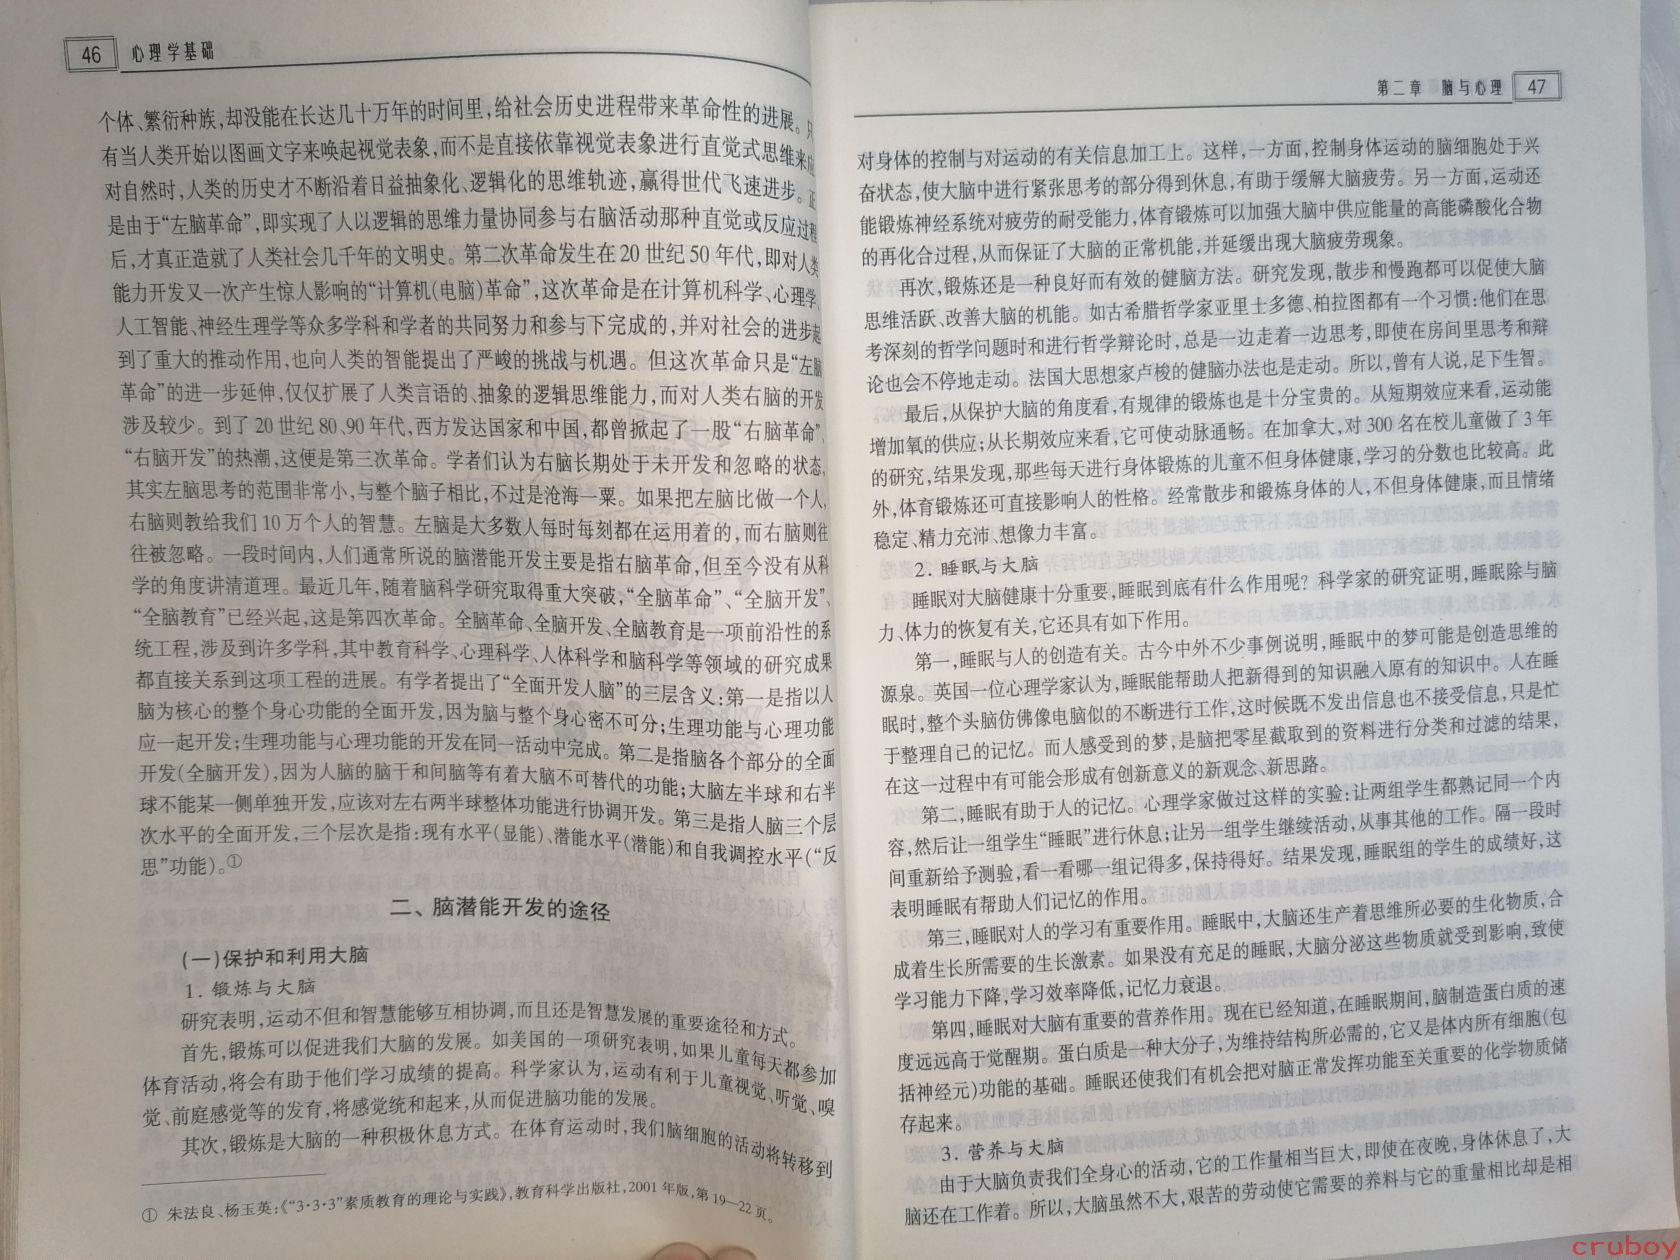 46 心理学基础
个体、繁衍种族,却没能在长达几十万年的时间里,给社会历史进程带来革命性的进展。只
有当人类开始以图画文字来唤起视觉表象,而不是直接依靠视觉表象进行直觉式思维来应
对自然时,人类的历史才不断沿着日益抽象化、逻辑化的思维轨迹,赢得世代飞速进步。正
是由于“左脑革命”,即实现了人以逻辑的思维力量协同参与右脑活动那种直觉或反应过程
后,才真正造就了人类社会几千年的文明史。第二次革命发生在20世纪50年代,即对人类
能力开发又一次产生惊人影响的“计算机(电脑)革命”,这次革命是在计算机科学、心理学、
人工智能、神经生理学等众多学科和学者的共同努力和参与下完成的,并对社会的进步起
到了重大的推动作用,也向人类的智能提出了严峻的挑战与机遇。但这次革命只是“左脑
革命”的进一步延伸,仅仅扩展了人类言语的、抽象的逻辑思维能力,而对人类右脑的开发
涉及较少。到了20世纪80、90年代,西方发达国家和中国,都曾掀起了一股“右脑革命”、
“右脑开发”的热潮,这便是第三次革命。学者们认为右脑长期处于未开发和忽略的状态,
其实左脑思考的范围非常小,与整个脑子相比,不过是沧海一粟。如果把左脑比做一个人,
右脑则教给我们10万个人的智慧。左脑是大多数人每时每刻都在运用着的,而右脑则往
往被忽略。一段时间内,人们通常所说的脑潜能开发主要是指右脑革命,但至今没有从科
学的角度讲清道理。最近几年,随着脑科学研究取得重大突破,“全脑革命”、“全脑开发”、
“全脑教育”已经兴起,这是第四次革命。全脑革命、全脑开发、全脑教育是一项前沿性的系
统工程,涉及到许多学科,其中教育科学、心理科学、人体科学和脑科学等领域的研究成果
都直接关系到这项工程的进展。有学者提出了“全面开发人脑”的三层含义:第一是指以人
脑为核心的整个身心功能的全面开发,因为脑与整个身心密不可分;生理功能与心理功能
应一起开发;生理功能与心理功能的开发在同一活动中完成。第二是指脑各个部分的全面
开发(全脑开发),因为人脑的脑干和间脑等有着大脑不可替代的功能;大脑左半球和右半
球不能某一侧单独开发,应该对左右两半球整体功能进行协调开发。第三是指人脑三个层
次水平的全面开发,三个层次是指:现有水平(显能)、潜能水平(潜能)和自我调控水平(“反
思”功能)。①
二、脑潜能开发的途径
(一)保护和利用大脑
1. 锻炼与大脑
研究表明,运动不但和智慧能够互相协调,而且还是智慧发展的重要途径和方式。
首先,锻炼可以促进我们大脑的发展。如美国的一项研究表明,如果儿童每天都参加
体育活动,将会有助于他们学习成绩的提高。科学家认为,运动有利于儿童视觉、听觉、嗅
觉、前庭感觉等的发育,将感觉统和起来,从而促进脑功能的发展。
其次,锻炼是大脑的一种积极休息方式。在体育运动时,我们脑细胞的活动将转移到
① 朱法良、杨玉英:《“3·3·3”素质教育的理论与实践》,教育科学出版社,2001年版,第19—22页。
第二章 脑与心理 47
对身体的控制与对运动的有关信息加工上。这样,一方面,控制身体运动的脑细胞处于兴
奋状态,使大脑中进行紧张思考的部分得到休息,有助于缓解大脑疲劳。另一方面,运动还
能锻炼神经系统对疲劳的耐受能力,体育锻炼可以加强大脑中供应能量的高能磷酸化合物
的再化合过程,从而保证了大脑的正常机能,并延缓出现大脑疲劳现象。
再次,锻炼还是一种良好而有效的健脑方法。研究发现,散步和慢跑都可以促使大脑
思维活跃、改善大脑的机能。如古希腊哲学家亚里士多德、柏拉图都有一个习惯:他们在思
考深刻的哲学问题时和进行哲学辩论时,总是一边走着一边思考,即使在房间里思考和辩
论也会不停地走动。法国大思想家卢梭的健脑办法也是走动。所以,曾有人说,足下生智。
最后,从保护大脑的角度看,有规律的锻炼也是十分宝贵的。从短期效应来看,运动能
增加氧的供应;从长期效应来看,它可使动脉通畅。在加拿大,对300名在校儿童做了3年
的研究,结果发现,那些每天进行身体锻炼的儿童不但身体健康,学习的分数也比较高。此
外,体育锻炼还可直接影响人的性格。经常散步和锻炼身体的人,不但身体健康,而且情绪
稳定、精力充沛、想像力丰富。
2. 睡眠与大脑
睡眠对大脑健康十分重要,睡眠到底有什么作用呢?科学家的研究证明,睡眠除与脑
力、体力的恢复有关,它还具有如下作用。
第一,睡眠与人的创造有关。古今中外不少事例说明,睡眠中的梦可能是创造思维的
源泉。英国一位心理学家认为,睡眠能帮助人把新得到的知识融入原有的知识中。人在睡
眠时,整个头脑仿佛像电脑似的不断进行工作,这时候既不发出信息也不接受信息,只是忙
于整理自己的记忆。而人感受到的梦,是脑把零星截取到的资料进行分类和过滤的结果,
在这一过程中有可能会形成有创新意义的新观念、新思路。
第二,睡眠有助于人的记忆。心理学家做过这样的实验:让两组学生都熟记同一个内
容,然后让一组学生“睡眠”进行休息;让另一组学生继续活动,从事其他的工作。隔一段时
间重新给予测验,看一看哪一组记得多,保持得好。结果发现,睡眠组的学生的成绩好,这
表明睡眠有帮助人们记忆的作用。
第三,睡眠对人的学习有重要作用。睡眠中,大脑还生产着思维所必要的生化物质,合
成着生长所需要的生长激素。如果没有充足的睡眠,大脑分泌这些物质就受到影响,致使
学习能力下降,学习效率降低,记忆力衰退。
第四,睡眠对大脑有重要的营养作用。现在已经知道,在睡眠期间,脑制造蛋白质的速
度远远高于觉醒期。蛋白质是一种大分子,为维持结构所必需的,它又是体内所有细胞(包
括神经元)功能的基础。睡眠还使我们有机会把对脑正常发挥功能至关重要的化学物质储
存起来。
3. 营养与大脑
由于大脑负责我们全身心的活动,它的工作量相当巨大,即使在夜晚,身体休息了,大
脑还在工作着。所以,大脑虽然不大,艰苦的劳动使它需要的养料与它的重量相比却是相
cruboy